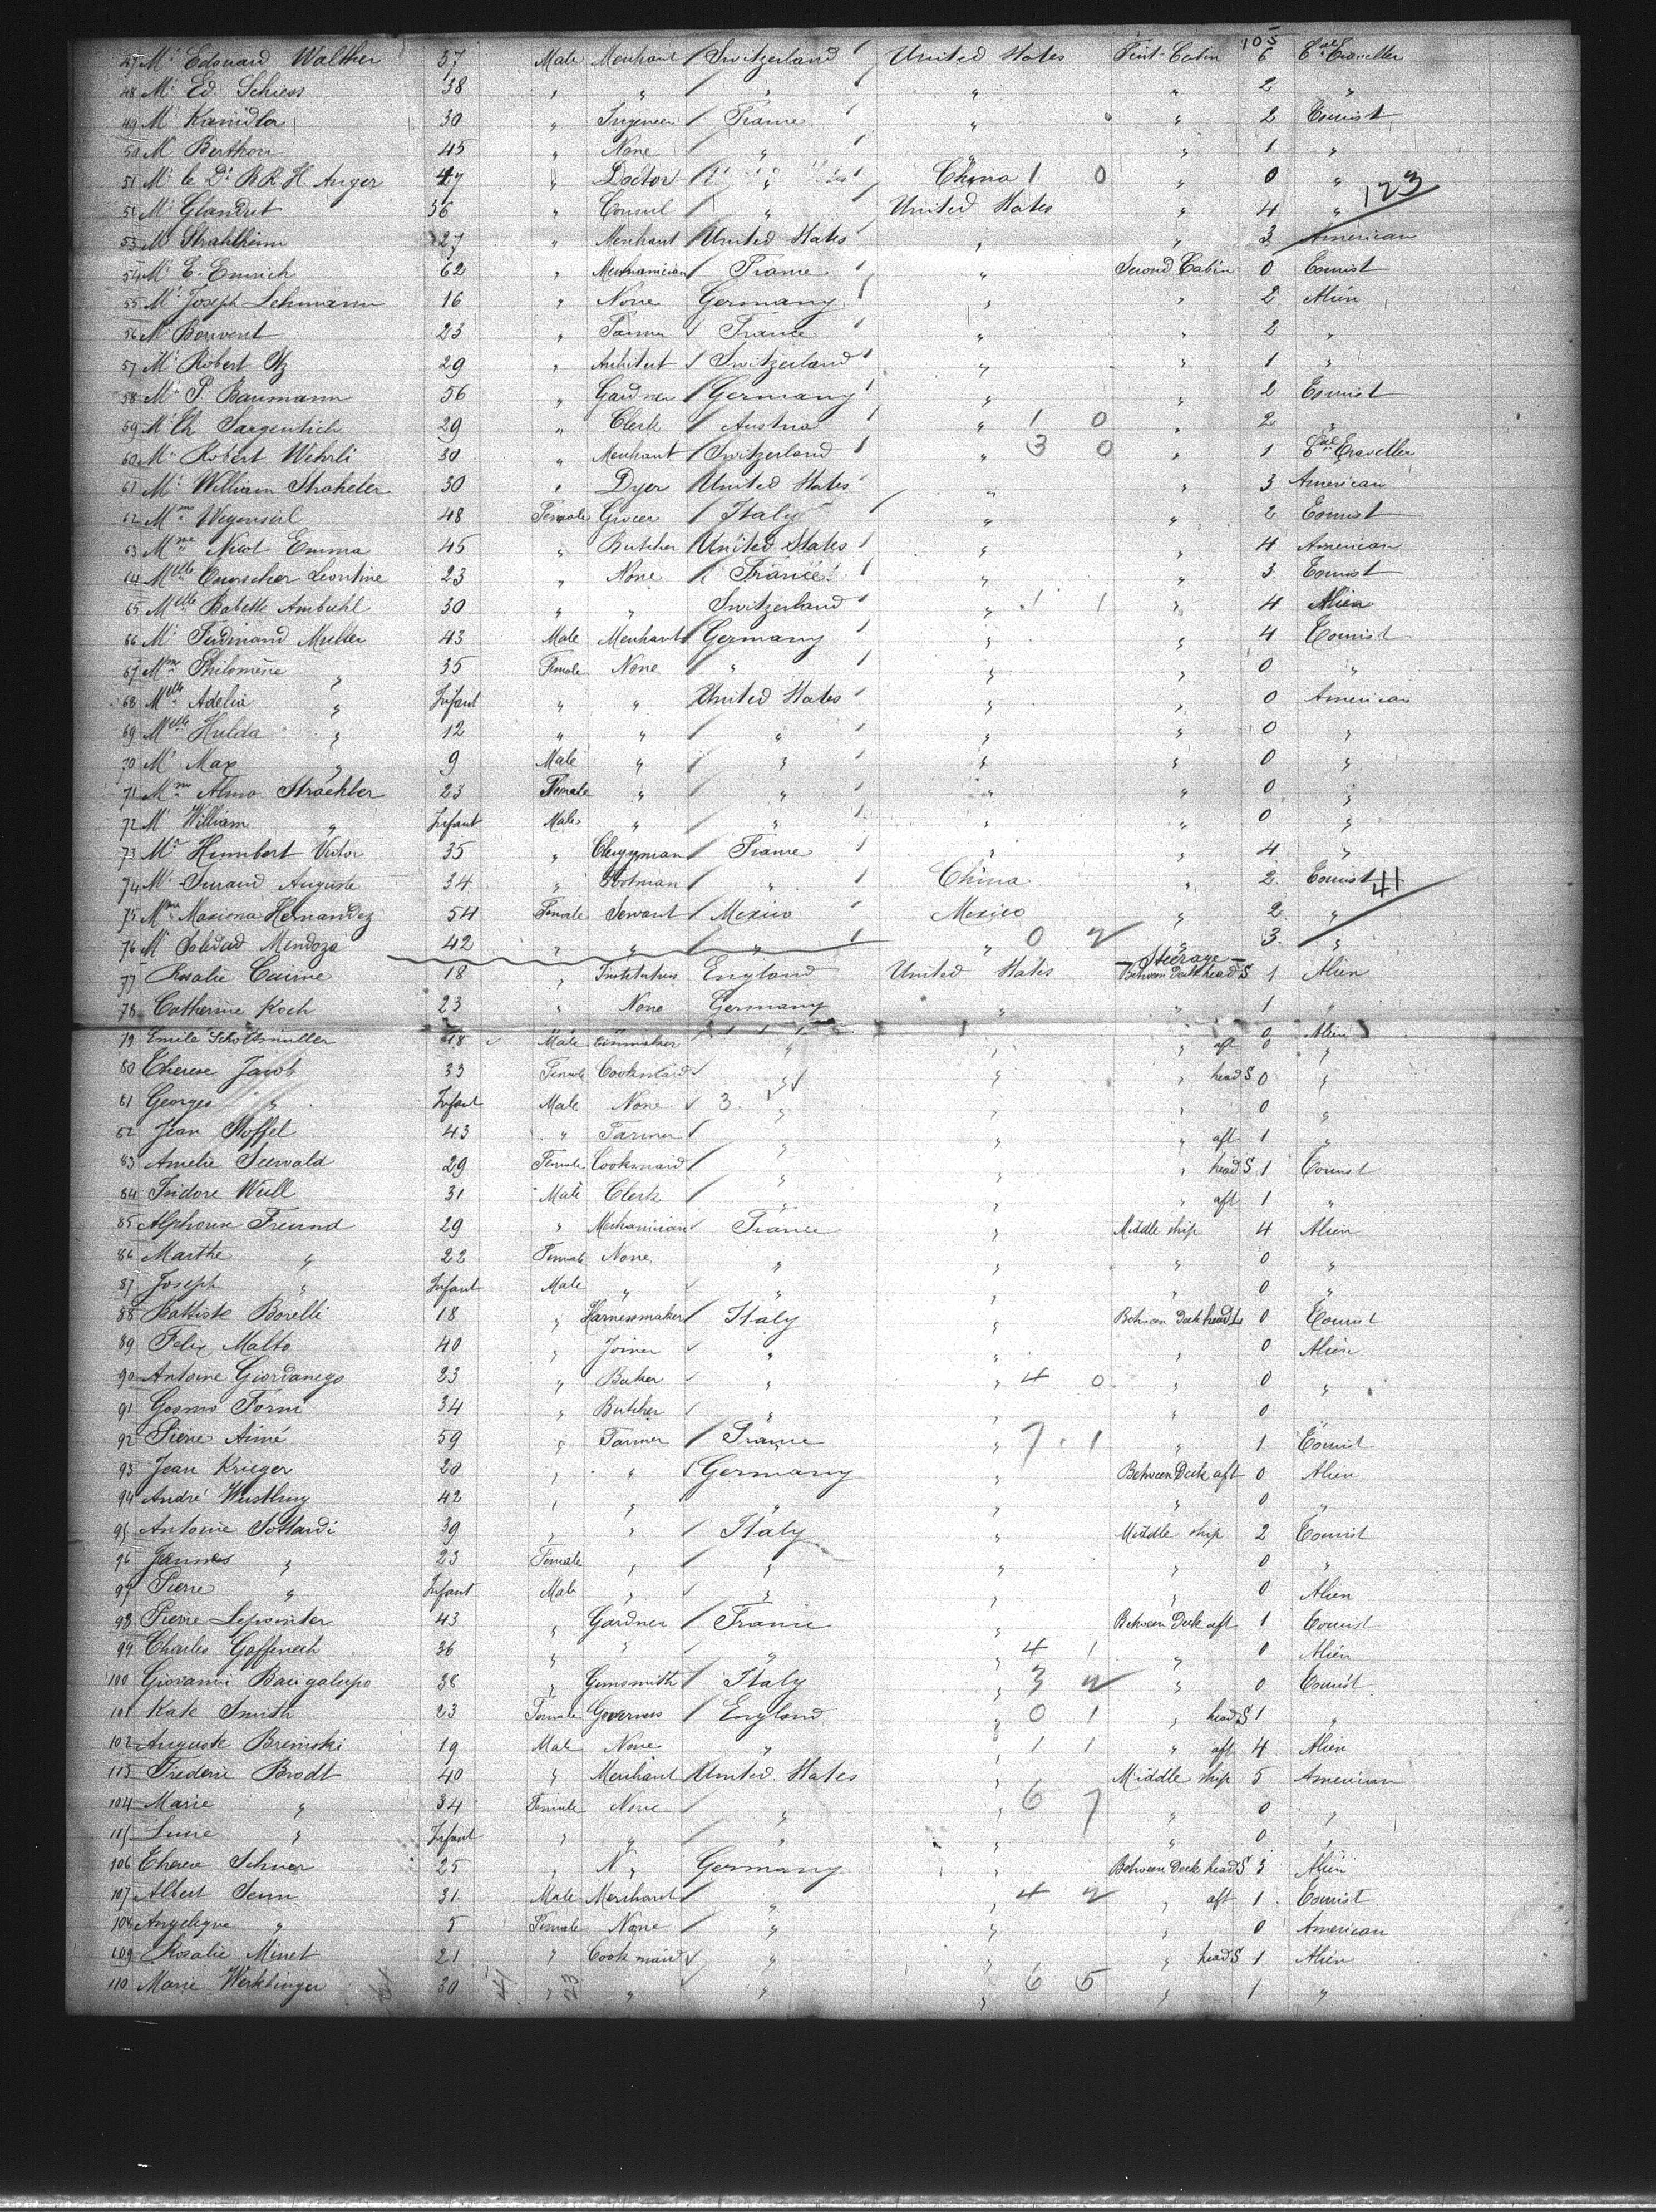 105
47 Mr Edouard Walther 37 Male Merchant Switzerland United States First Cabin 6 Cal Traveller
48 Mr Ed. Schiess 38 " " " " " 2 "
49 Mr Kanidlor 30 " Ingeneer France " " 2 Tourist
50 M Berthon 45 " None " " " 1 "
51 Mr le Dr B R H Auger 47 " Doctor " China 1 0 " 0 "
52 Mr Glandut 56 " Consul " United States " 4 " 123
53 Mr Strahlheim 27 " Merchant United States " " 3 American
54 Mr E. Emrich 62 " Mechanician France " Second Cabin 0 Tourist
55 Mr Joseph Lehmann 16 " None Germany " " 2 Alien
56 Mr Bouvent 23 " Farmer France " " 2 "
57 Mr Robert 29 " Architect Switzerland " " 1 "
58 Mr P. Baumann 56 " Gardner Germany " " 2 Tourist
59 Mr Th Sargentich 29 " Clerk Austria " 1 0 " 2 "
60 Mr Robert Wehrli 30 " Merchant Switzerland " 3 0 " 1 Cal Traveller
61 Mr William Straheler 30 " Dyer United States " " 3 American
62 Mme 48 Female Grocer Italy " " 2 Tourist
63 Mme Nicot Emma 45 " Butcher United States " " 4 American
64 Melle Leontine 23 " None France " " 3 Tourist
65 Melle Babette Ambuhl 30 " " Switzerland " 1 1 " 4 Alien
66 Mr Ferdinand Muller 43 Male Merchant Germany " " 4 Tourist
67 Mme Philomène " 35 Female None " " " 0 "
68 Melle Adelia " Infant " " United States " " 0 American
69 Melle Hulda " 12 " " " " " 0 "
70 Mr Max " 9 Male " " " " 0 "
71 Mme Alma Straehler 23 Female " " " " 0 "
72 Mr William " Infant Male " " " " 0 "
73 Mr Humbert Victor 35 " Clergyman France " " 4 "
74 Mr Auguste 34 " " China " 2 Tourist 41
75 Mme Hernandez 54 Female Servant Mexico Mexico " 2 "
76 M Soledad Mendoza 42 " " " " 0 2 " 3 "
Steerage
77 Rosalie 18 " England United States Between Deck head S 1 Alien
78 Catherine Koch 23 " None Germany " " 1 "
79 Emile Schottsmuller 18 Male " " " aft 0 Alien
80 Therese Jacob 33 Female Cookmaid " " " head S 0 "
81 Georges " Infant Male None 3 " " " 0 "
82 Jean Stoffel 43 " Farmer " " " aft 1 "
83 Amelie Seewald 29 Female Cookmaid " " " head S 1 Tourist
84 Isidore Weill 31 Male Clerk " " " aft 1 "
85 Alphonse Freund 29 " Mechanician France " Middle ship 4 Alien
86 Marthe " 22 Female None " " " 0 "
87 Joseph " Infant Male " " " " 0 "
88 Battiste Borelli 18 " Harnessmaker Italy " Between Deck head 0 Tourist
89 Felix Malto 40 " Joiner " " " 0 Alien
90 Antoine Giordanego 23 " Baker " " 4 0 " 0 "
91 Cosmo Forni 34 " Butcher " " " 0
92 Pierre Aimé 59 " Farmer France " 7 1 " 1 Tourist
93 Jean Krieger 20 " " Germany " Between Deck aft 0 Alien
94 André 42 " " " " " 0 "
95 Antoine Sottardi 39 " " Italy " Middle ship 2 Tourist
96 " 23 Female " " " " 0 "
97 Pierre " Infant Male " " " " 0 Alien
98 Pierre Lepointer 43 " Gardner France " Between Deck aft 1 Tourist
99 Charles 36 " " " " 4 1 " 0 Alien
100 Giovanni Bacigalupo 38 " Italy " 3 2 " 0 Tourist
101 Kate Smith 23 Female Governess England " 0 1 " head S 1 "
102 Auguste Breinski 19 Male None " " 1 1 " aft 4 Alien
113 Frederic Brodt 40 " Merchant United States " Middle ship 5 American
104 Marie " 34 Female None " " 6 7 " 0 "
115 Lucie " Infant " " " " " 0 "
106 Therese 25 " N " Germany " Between Deck head S 3 Alien
107 Albert Senn 31 Male Merchant " " 4 2 " aft 1 Tourist
108 Angelique " 5 Female None " " " 0 American
109 Rosalie Minet 21 " Cook maid " " " head S 1 Alien
110 Marie Werklinger 30 " " " " 6 5 " 1 "
41 23